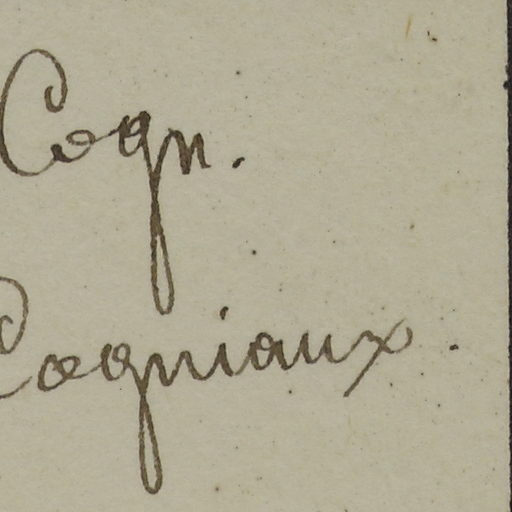 Cogn.
Cogniaux.